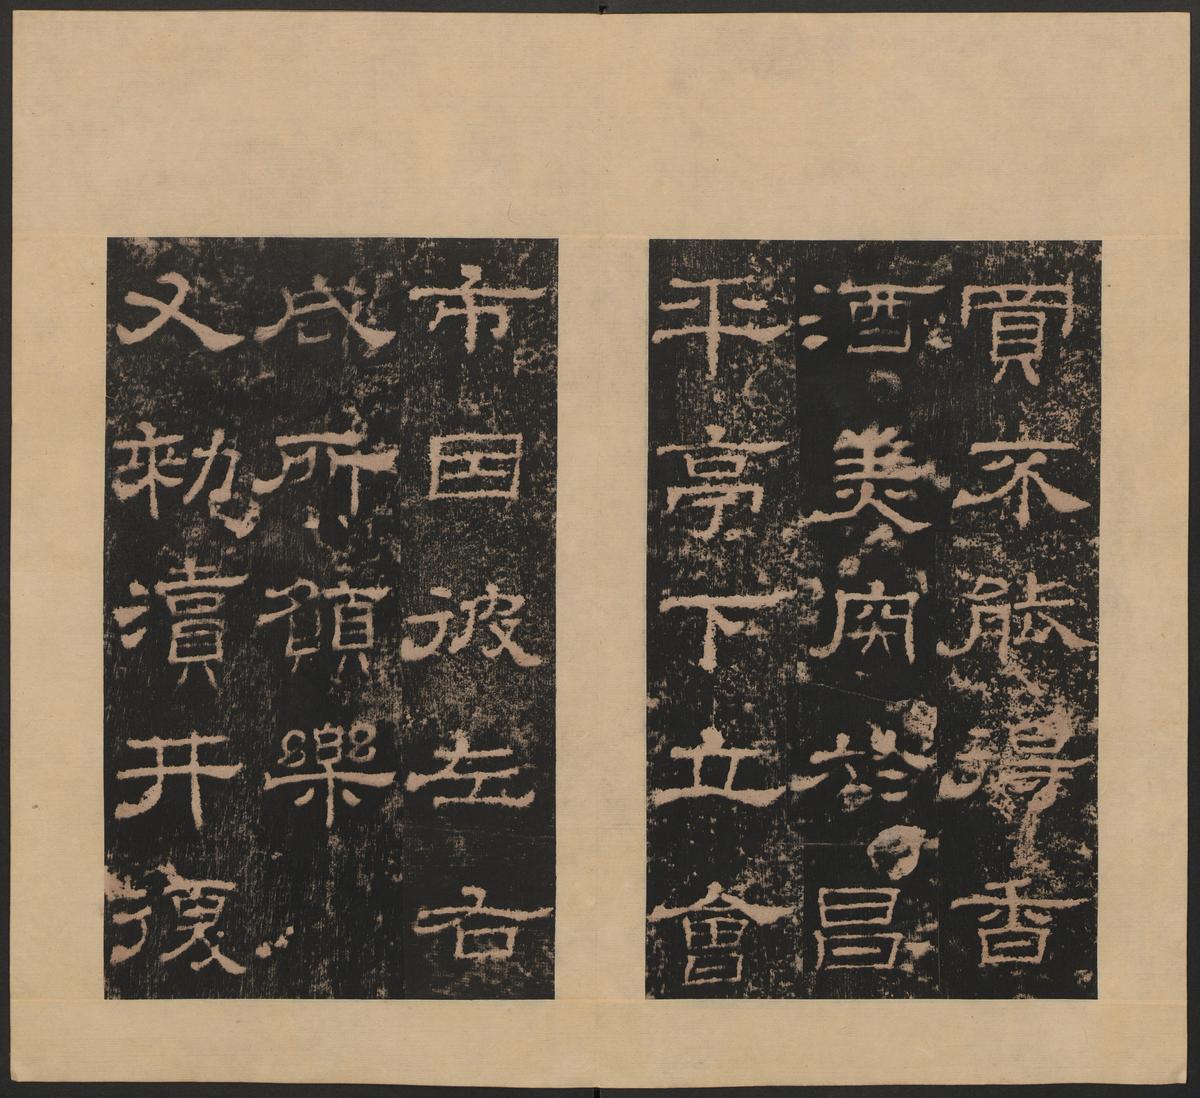 買不能得香
酒美肉於昌
平亭下立會
市因彼左右
咸所願樂
又勑瀆井復